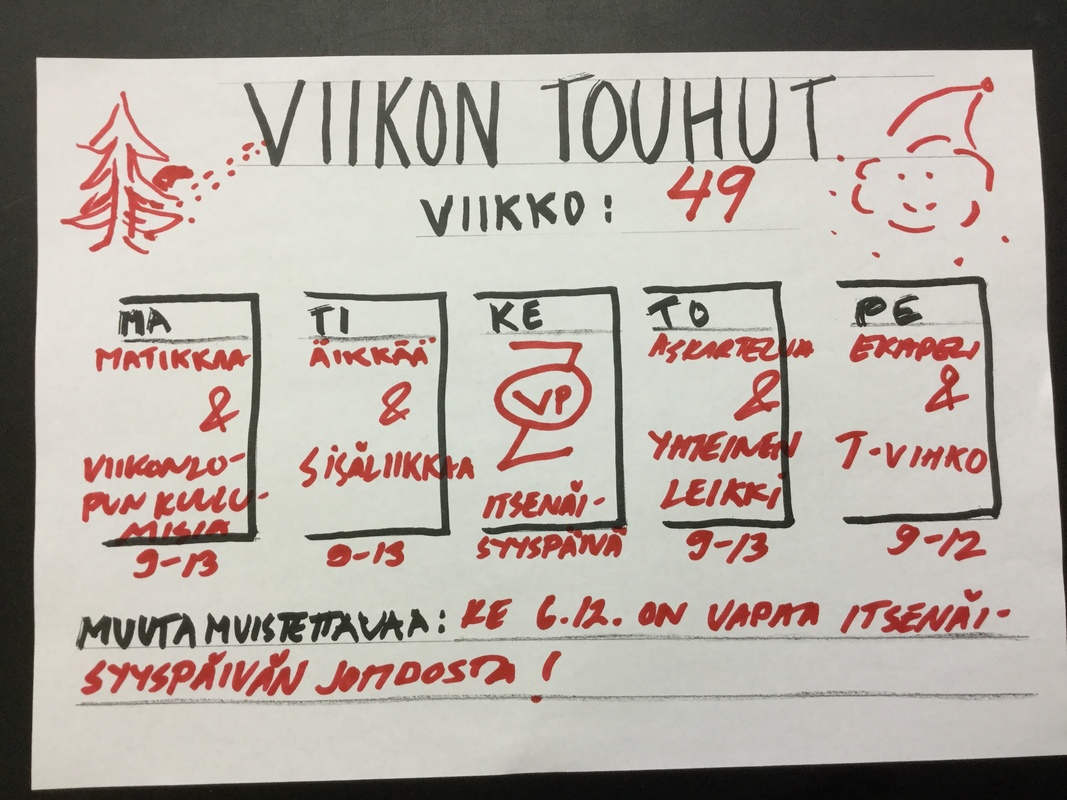 VIIKON TOUHUT
VIIKKO: 49
MA
MATIKKAA
&
VIIKONLO-
PUN KUULU-
MISIA
9-13
TI
ÄIKKÄÄ
&
SISÄLIIKKAA
9-13
KE
VP
ITSENÄI-
SYYSPÄIVÄ
TO
ASKARTELUA
&
YHTEINEN
LEIKKI
9-13
PE
EKAPELI
&
T-VIHKO
9-12
MUUTA MUISTETTAVAA: KE 6.12. ON VAPAA ITSENÄI-
SYYSPÄIVÄN JOHDOSTA!